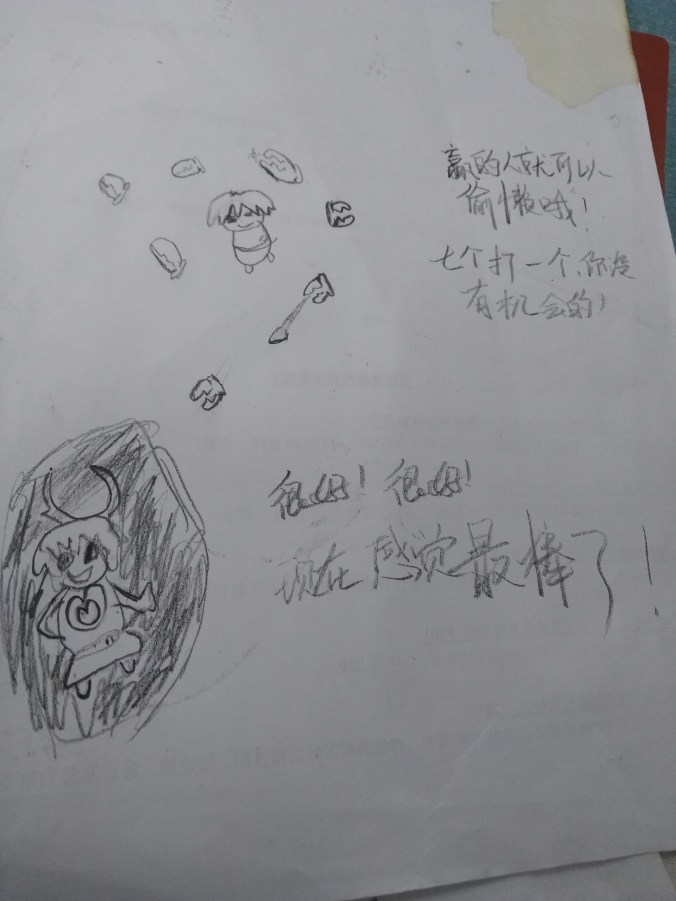 赢的人就可以
偷懒哦!
七个打一个,你没
有机会的!
很好!很好!
现在感觉最棒了!